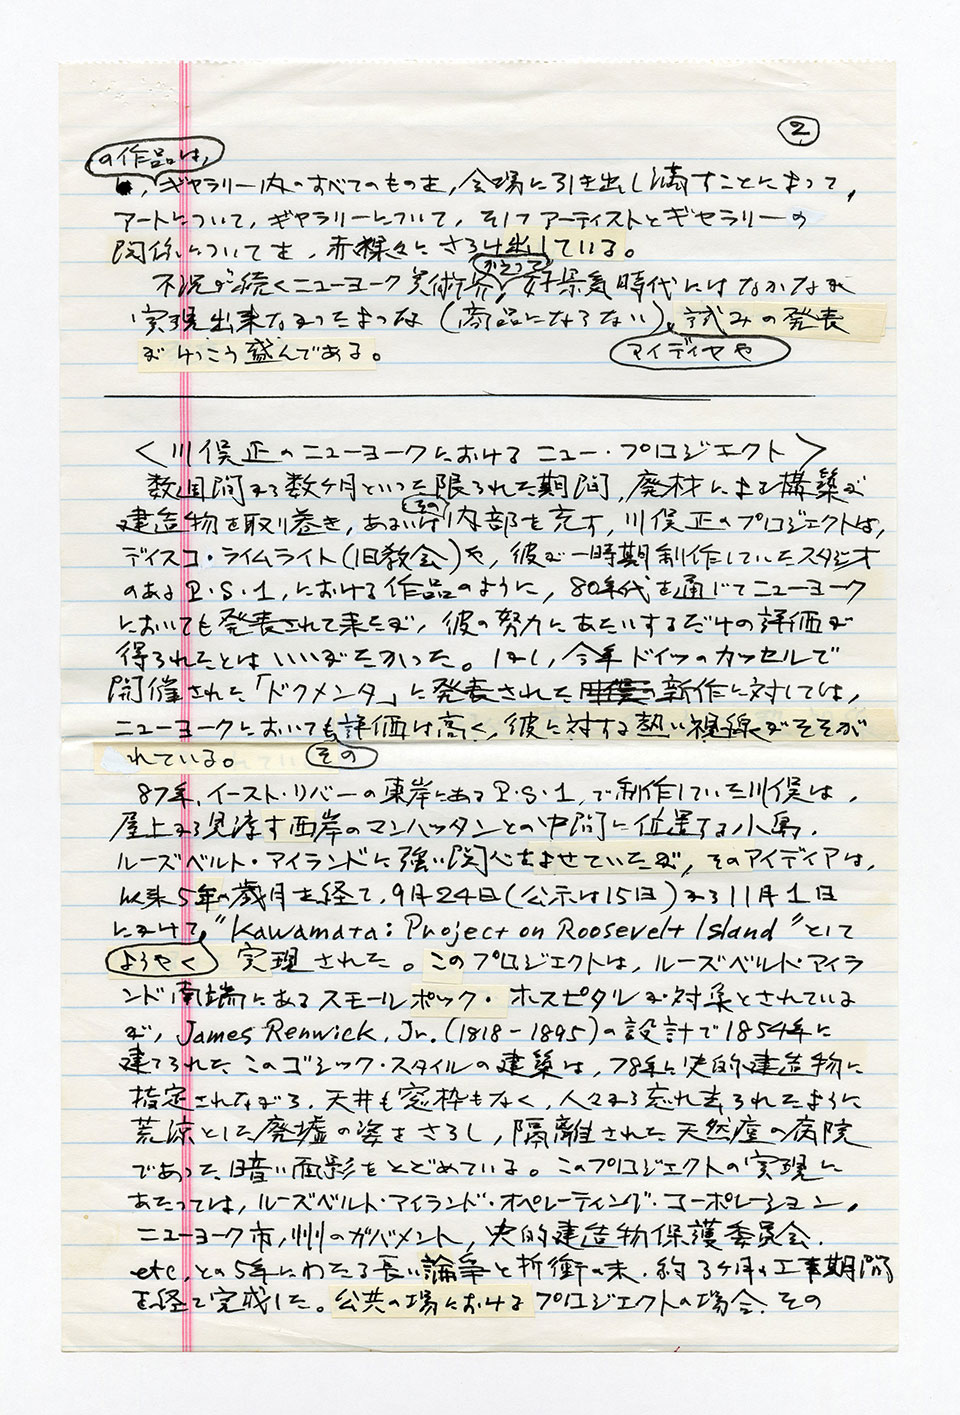 ②
の作品は,
ギャラリー内のすべてのものを,会場に引き出し満すことによって,
アートについて,ギャラリーについて,そしてアーティストとギャラリーの
関係についてを,赤裸々にさらけ出している。
かえって
不況が続くニューヨーク美術界,好景気時代にはなかなか
実現出来なかったような(商品にならない),試みの発表
がけっこう盛んである。
アイディヤや
<川俣正のニューヨークにおけるニュー・プロジェクト>
数週間から数ヶ月といった限られた期間,廃材による構築が
その
建造物を取り巻き,あるいは内部を充す,川俣正のプロジェクトは,
ディスコ・ライムライト(旧教会)や,彼が一時期制作していたスタジオ
のあるP.S.1,における作品のように,80年代を通じてニューヨーク
においても発表されて来たが,彼の努力にあたいするだけの評価が
得られたとはいいがたかった。しかし,今年ドイツのカッセルで
開催された「ドクメンタ」に発表された新作に対しては,
ニューヨークにおいても評価は高く,彼に対する熱い視線がそそが
れている。
その
87年,イースト・リバーの東岸にあるP.S.1,で制作していた川俣は,
屋上から見渡す西岸のマンハッタンとの中間に位置する小島,
ルーズベルト・アイランドに強い関心をよせていたが,そのアイディアは,
以来5年の歳月を経て,9月24日(公示は15日)から11月1日
にかけて,"Kawamata: Project on Roosevelt Island"として
ようやく
実現された。このプロジェクトは,ルーズベルト・アイラ
ンド南端にあるスモールポック・ホスピタルが対象とされている
が,James Renwick, Jr.(1818-1895)の設計で1854年に
建てられたこのゴシック・スタイルの建築は,78年に史的建造物に
指定されながら,天井も窓枠もなく,人々から忘れ去られたように
荒涼とした廃墟の姿をさらし,隔離された天然痘の病院
であった暗い面影をとどめている。このプロジェクトの実現に
あたっては,ルーズベルト・アイランド・オペレーティング・コーポレーション,
ニューヨーク市,州のガバメント,史的建造物保護委員会,
etc,との5年にわたる長い論争と折衝の末,約3ヶ月の工事期間
を経て完成した。公共の場におけるプロジェクトの場合,その